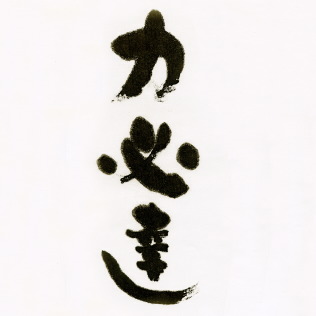 力必達